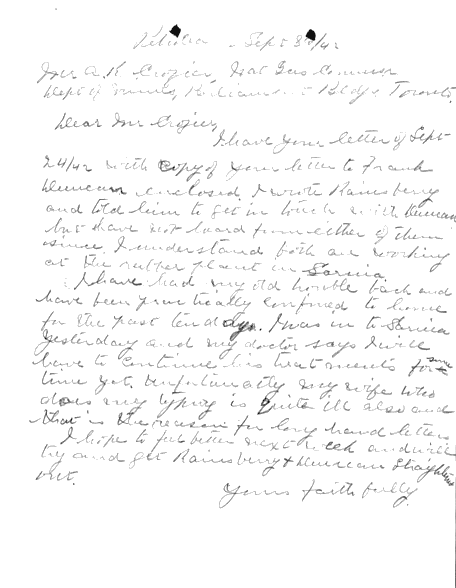 Petrolia - Sept 30/42
Mr A. R. Crozier, Nat Gas Commr
Dept of Mines, Parliament Bldgs, Toronto.
Dear Mr Crozier,
I have your letter of Sept
24/42 with copy of your letter to Frank
Duncan enclosed. I wrote Rainsberry
and told him to get in touch with Duncan
but have not heard from either of them
since. I understand both are working
at the rubber plant in Sarnia.
I have had my old trouble back and
have been practically confined to home
for the past ten days. I was in to Sarnia
yesterday and my doctor says I will
have to continue his treatments for some
time yet. Unfortunatly my wife who
does my typing is quite ill also and
that is the reason for long hand letters
I hope to feel better next week and will
try and get Rainsberry + Duncan straightened
out.
Yours faithfully